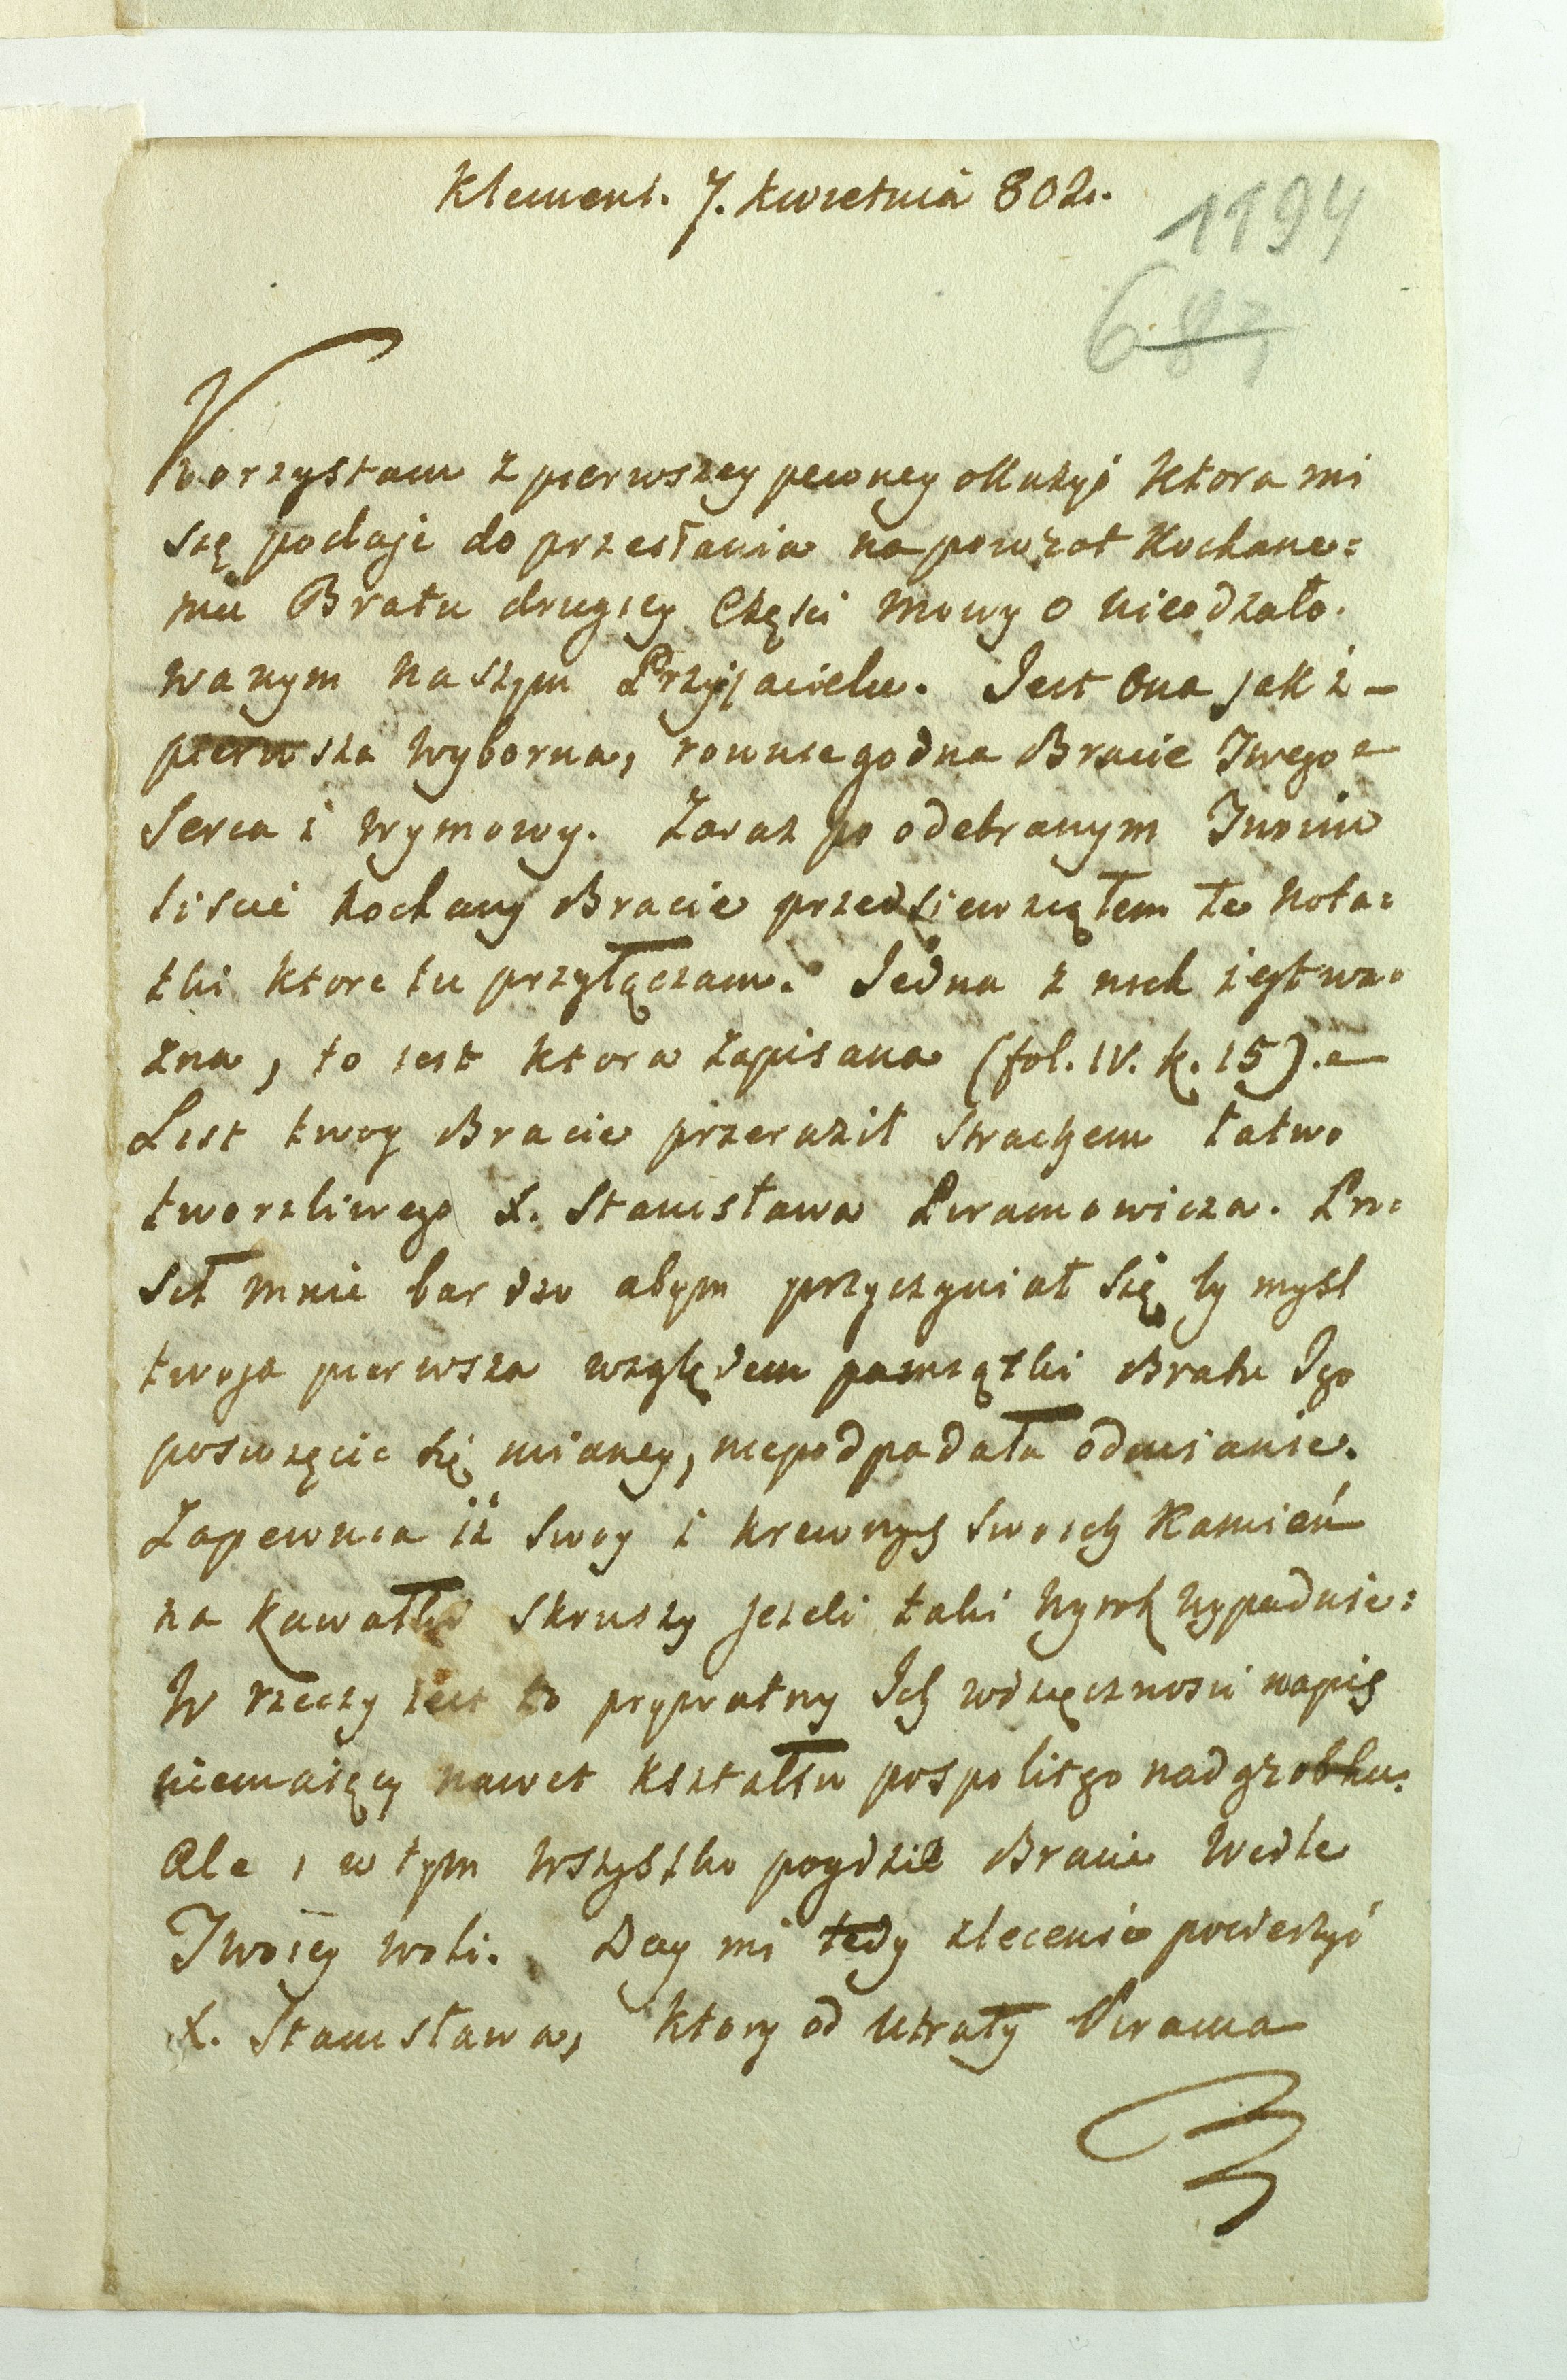 Klement. 7. kwietnia 802.
1194
687
Korzystam z pierwszey pewney okkazyi ktora mi
się podaje do przesłania na powrot Kochane=
mu Bratu drugiey Części mowy o nieodzało.
wanym naszym Przyjacielu. Jest Ona jak i –
pierwsza wyborna, rownie godna Bracie Twego
Serca i wymowy. Zaraz po odebranym Twoim
liscie kochany Bracie przedsiewziąłem te nota=
tki ktore tu przyłączam. Jedna z nich jest wa=
zna, to jest ktora zapisana (fol. IV. k. 15). –
List twoy Bracie przeraził strachem łatwo
tworzliwego X. Stanisława Piramowicza. Pro=
sił mnie bardzo abym przyczyniał się by mysl
twoja pierwsza względem pamiątki Bratu Jgo
poswięcic się mianey, niepodpadała odmianie.
Zapewnia iż swoy i krewnych swoich Kamień
na kawałki skruszy jezeli taki wyrok wypadnie:
W rzeczy jest to prywatny Ich wdzięcznosci napis
niemaiący nawet kształtu pospolitgo nadgrobku.
Ale i w tym wszystko poydzie Bracie wedle
Twoiey woli. Day mi tedy zlecenie pocieszyć
X. Stanisława, ktory od utraty Pirama